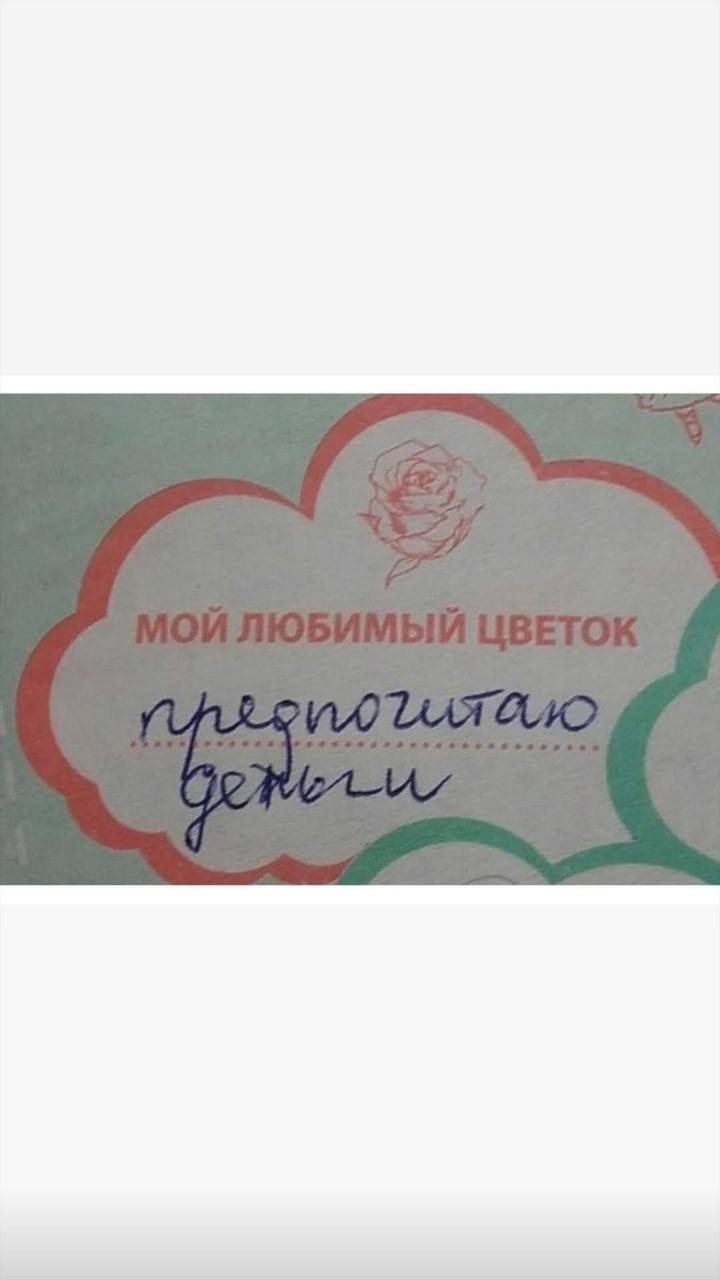 МОЙ ЛЮБИМЫЙ ЦВЕТОК
предпочитаю
деньги